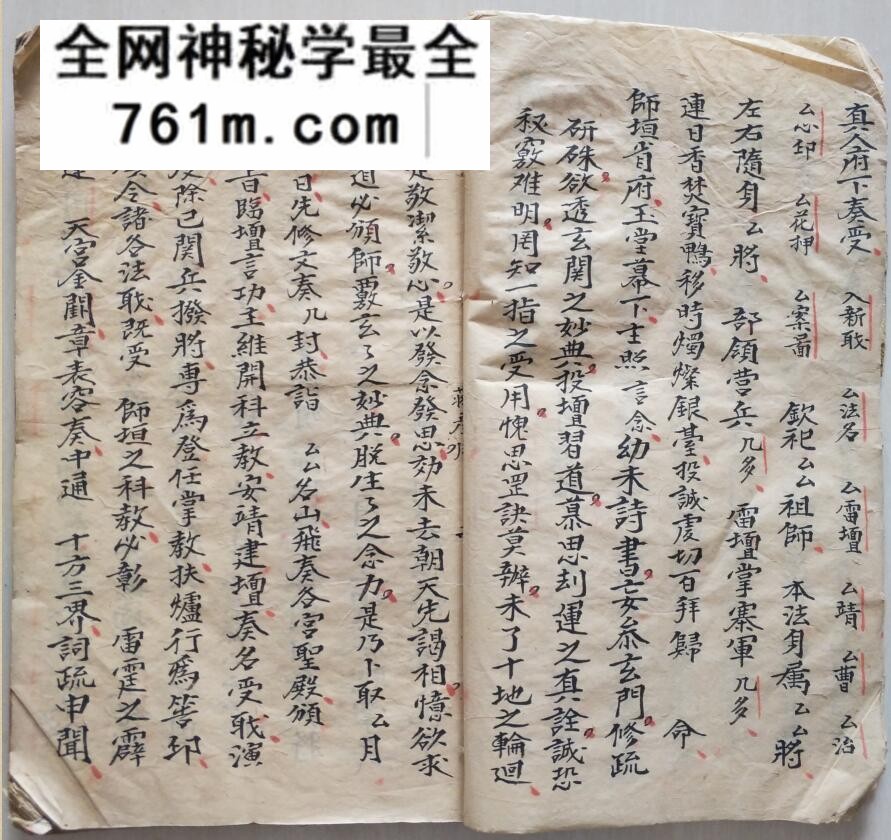 全网神秘学最全
761m.com
真人府下奏受 入新职 厶法名 厶雷壇 厶靖 厶曹 厶治
厶心印 厶花押 厶案畐 欽祀厶厶祖師 本法身属厶厶將
左右隨身厶將 部領营兵几多 雷壇掌寨軍几多
連日香焚寶鴨移時燭燦銀臺投誠虔切百拜歸 命
師垣肖府玉堂幕下主照言念幼未詩書妄叅玄門修疏
研硃欲透玄関之妙典投壇習道慕思刦運之真詮誠恐
秘竅难明罔知一指之受用愧思罡訣莫辦未了十地之輪迴
是敬潔敬心是以發念發思効未去朝天先謁相憶欲求
道必頒師覈玄了之妙典脱生了之念力是乃卜取厶月
日先修文奏几封恭詣 厶厶名山飛奏各宫聖殿頒
旨臨壇言功主維開科立教安靖建壇奏名受戝演
除己関兵撥將專爲登任掌教扶爐行爲筶印
令諸各法戝既受 師垣之科教必彰 雷霆之霹
天宫金闕章表容奏中通 十方三界詞疏申聞